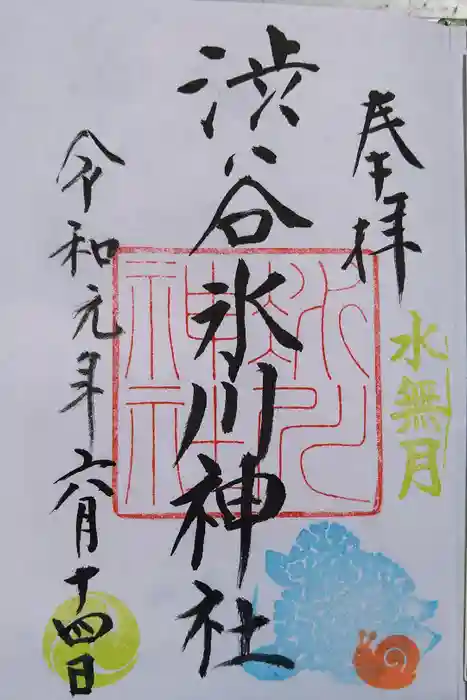 奉拝
水無月
渋谷氷川神社
氷川神社
令和元年六月十四日